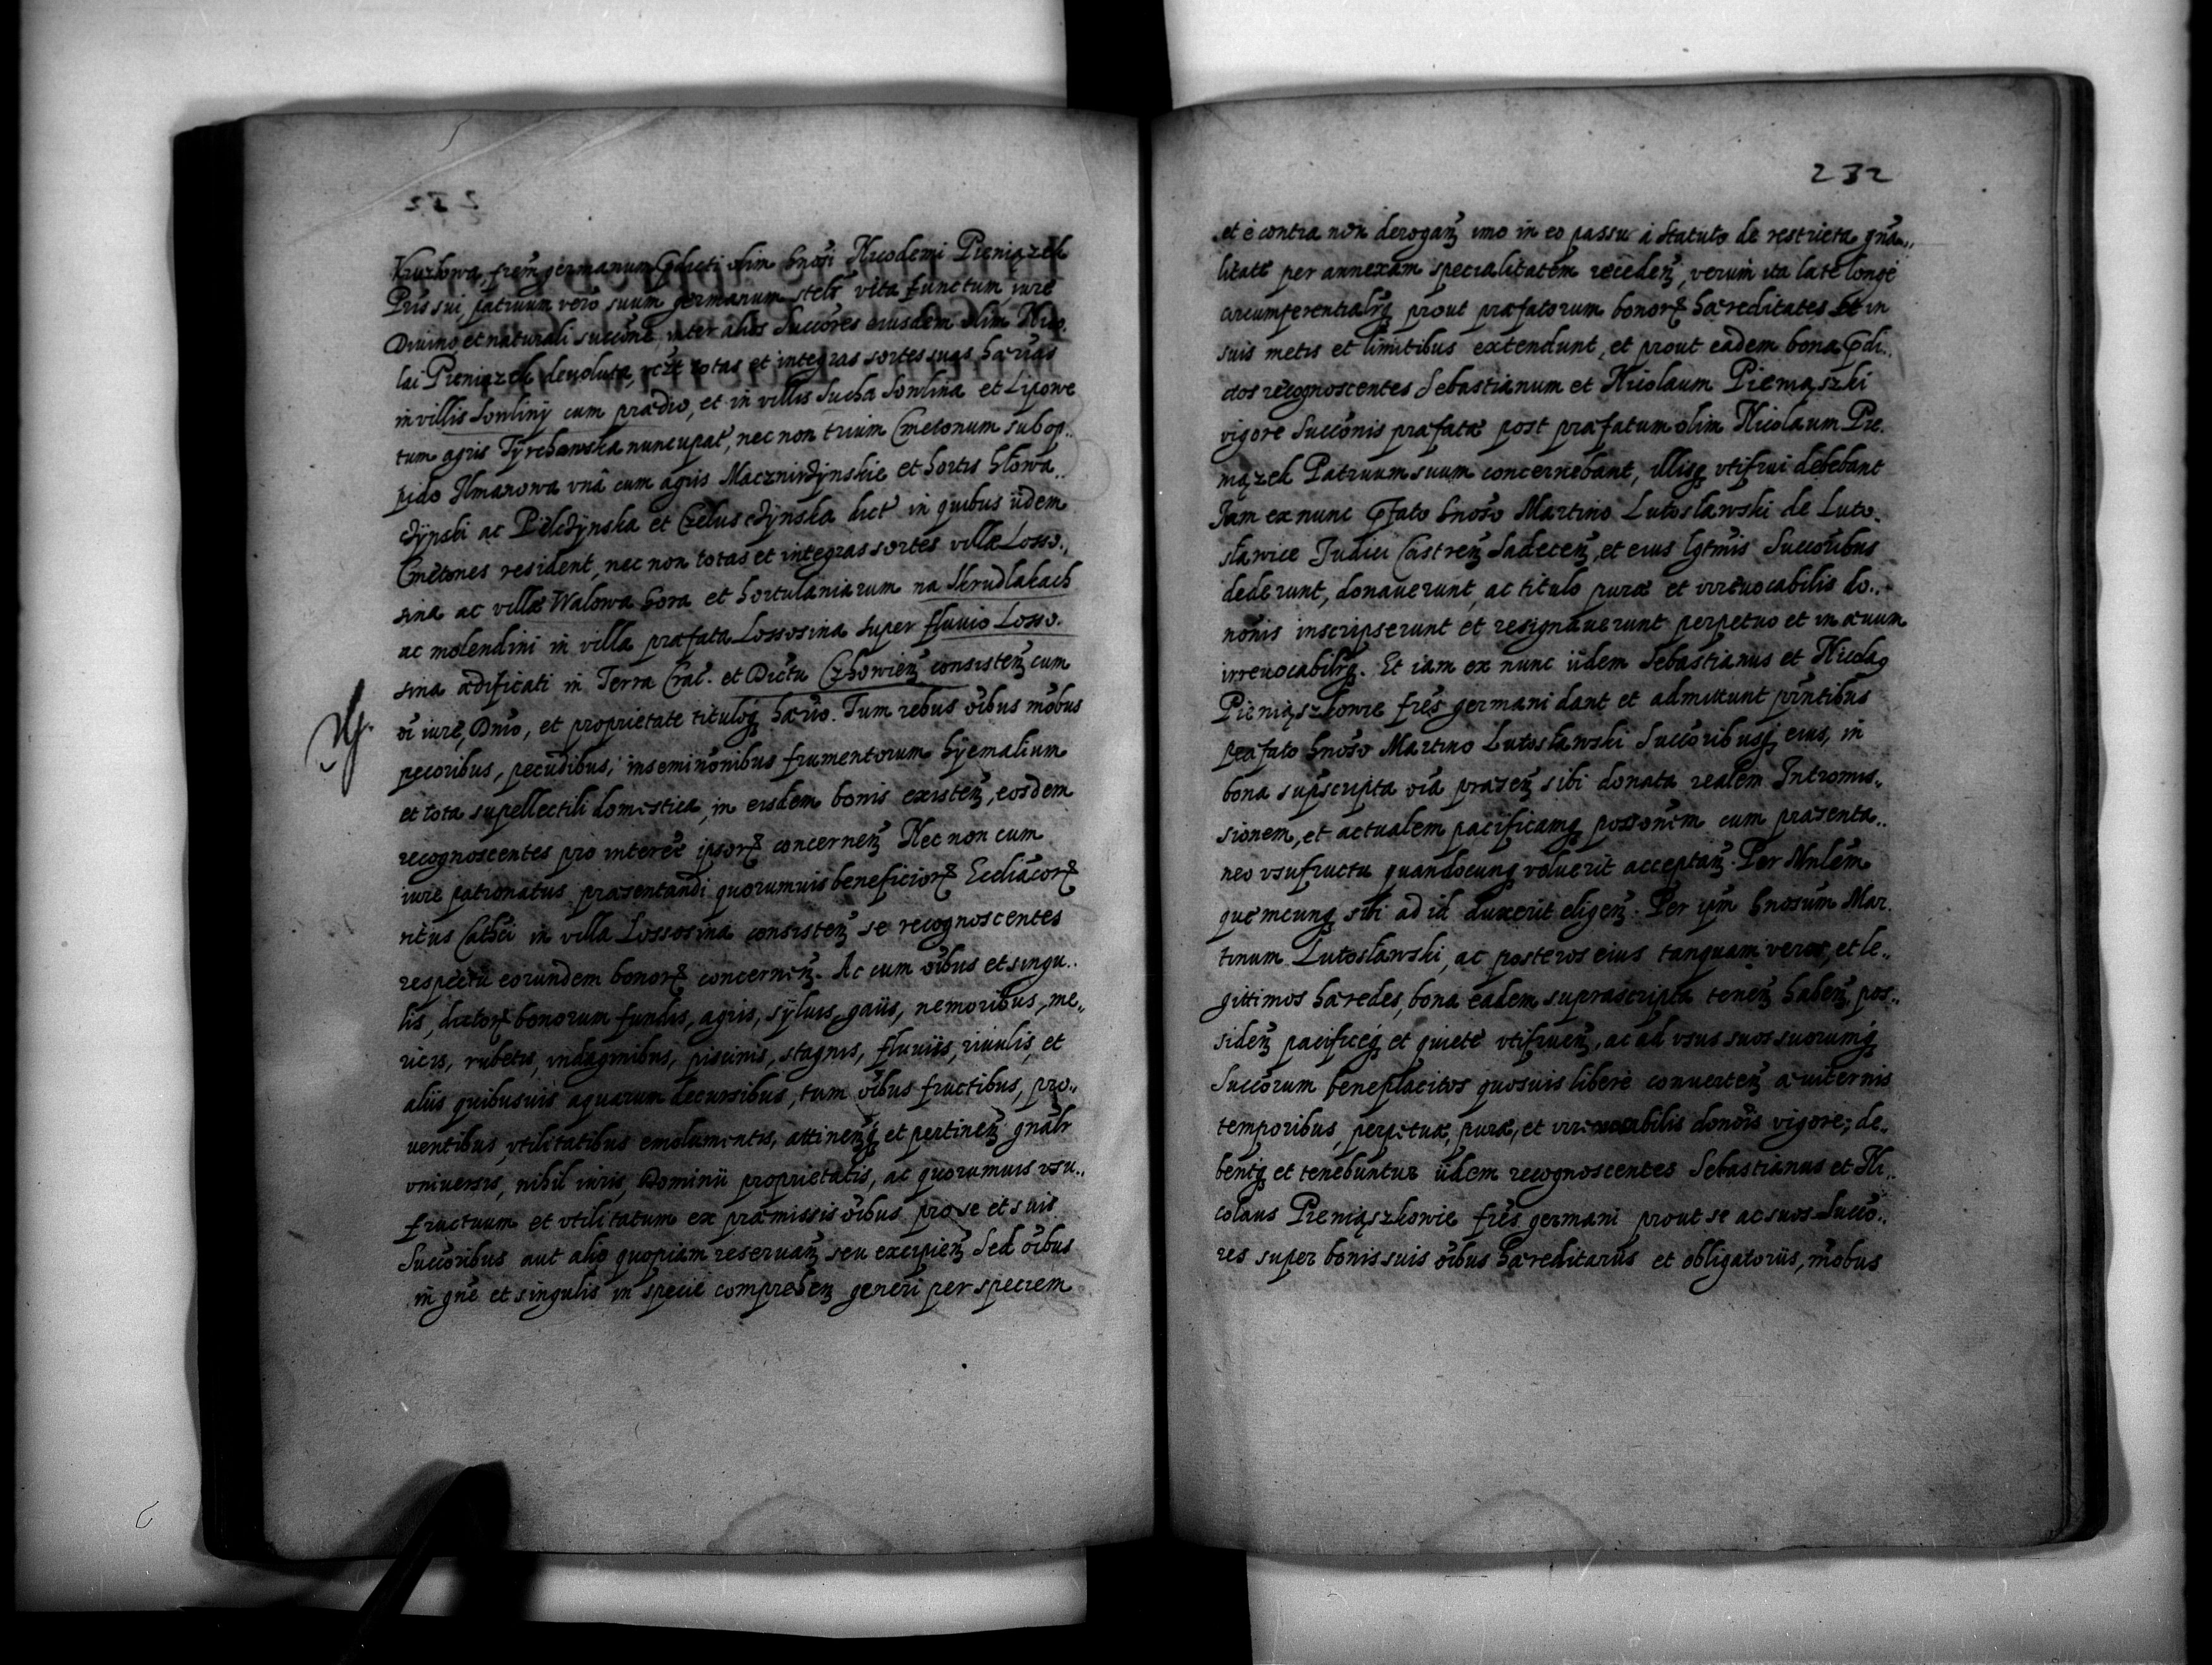 Kruzlowa, frem̃ germanum Pdicti olim gnõsi Nicodemi Pieniązek
Pris sui, patruum vero suum germanum steri͂ vita functum, iure
Diuino et naturali succõne, inter alios Succõres eiusdem olim Nico.
lai Pieniązek deuoluta, vczt totas et integras sortes suas hærias
in villis Sowliny cum prædio, et in villis Sucha Sowlina et Lipowe
tum agris Tyrchawska nuncupat, nec non trium Cmetonum sub op..
pido Ilmanowa vnâ cum agris Macznirdzynskie et hortis hłowa..
dzynski ac Pieldzynska et Czelusdzynska dict in quibus ijdem
Cmetones resident, nec non totas et integras sortes villæ Losso.,
sina ac villæ Walowa Gora et hortulaniarum na Skrudlakach
ac molendini in villa præfata Lossosina super fluuio Losso.
sina ædificati in Terra Crac. et Dictu Czchowien̄ consisten̄ cum
oi iure, Dnio, et proprietate tituloq hærio. Tum rebus oibus mobus
pecoribus, pecudibus, inseminõnibus frumentorum hyemalium
et tota supellectili domestica, in eisdem bonis existen̄, eosdem
recognoscentes pro interee ipsorꝝ concernen̄ Nec non cum
iure patronatus præsentandi quorumuis beneficiorꝝ Ecclia͂corꝝ
ritus Cathci in villa Lossosina consisten̄ se recognoscentes
respectu eorundem bonorꝝ concernen̄. Ac cum oibus et singu..
lis, dictorꝝ bonorum fundis, agris, syluis, gaiis, nemoribus, me,,
ricis, rubetis, indaginibus, piscinis, stagnis, fluuiis, riuulis, et
aliis quibusuis aquarum decursibus, tum oibus fructibus, pro,,
uentibus, vtilitatibus emolumentis, attinen̄q et pertinen̄ gnalr
vniuersis, nihil iuris, Dominii proprietatis, ac quorumuis vsu..
fructuum et vtilitatum ex præmissis oibus pro se et suis
Succoribus aut alio quopiam reseruan̄ seu excipien̄ Sed oibus
in gne et singulis in specie comprehen̄ generi per speciem
232
et è contra non derogan̄ imo in eo passu à statuto de restricta gña,,
litate per annexam specialitatem receden̄, verum ita latè longè
circumferentialrq prout præfatorum bonorꝝ hæreditates in
suis metis et limitibus extendunt, et prout eadem bona Pdi..
ctos recognoscentes Sebastianum et Nicolaum Pieniąszki
vigore Succõnis præfatæ post præfatum olim Nicolaum Pie.
niązek Patruum suum concernebant, illisq vtifrui debebant
Iam ex nunc Pfato Gnoso Martino Lutosławski de Luto.
sławice Iudici Castren̄ Sadecen̄, et eius lgtmis Succoribus
dederunt, donauerunt, ac titulo puræ et irreuocabilis do..
nonis inscripserunt et resignauerunt perpetuo et in æuum
irreuocabilrq. Et iam ex nunc ijdem Sebastianus et Nicolaꝰ
Pieniąszkowie fres germani dant et admittunt pn̄tibus
præfato Gnoso Martino Lutosławski Succoribusq eius, in
bona supscripta viâ præsen̄ sibi donata realem Intromis,,
sionem, et actualem pacificamq possonem cum præsenta..
neo vsufructu quandocunq voluerit acceptan̄. Per Mnlem
quemcunq sibi ad id duxerit eligen̄. Per ipm Gnosum Mar.
tinum Lutosławski, ac posteros eius tanquam veros, et le,,
gittimos hæredes, bona eadem suprascripta tenen̄ haben̄ pos,,
siden̄ pacificeq et quiete vtifruen̄, ac ad vsus suos suorumq
Succorum beneplacitos quosuis liberè conuerten̄ æuiternis
temporibus, perpetuæ, puræ, et irreuocabilis donois vigore; de,,
bentq et tenebuntur ijdem recognoscentes Sebastianus et Ni,,
colaus Pieniąszkowie fres germani prout se ac suos Succo..
res super bonis suis oibus hæreditariis et obligatoriis, mobus